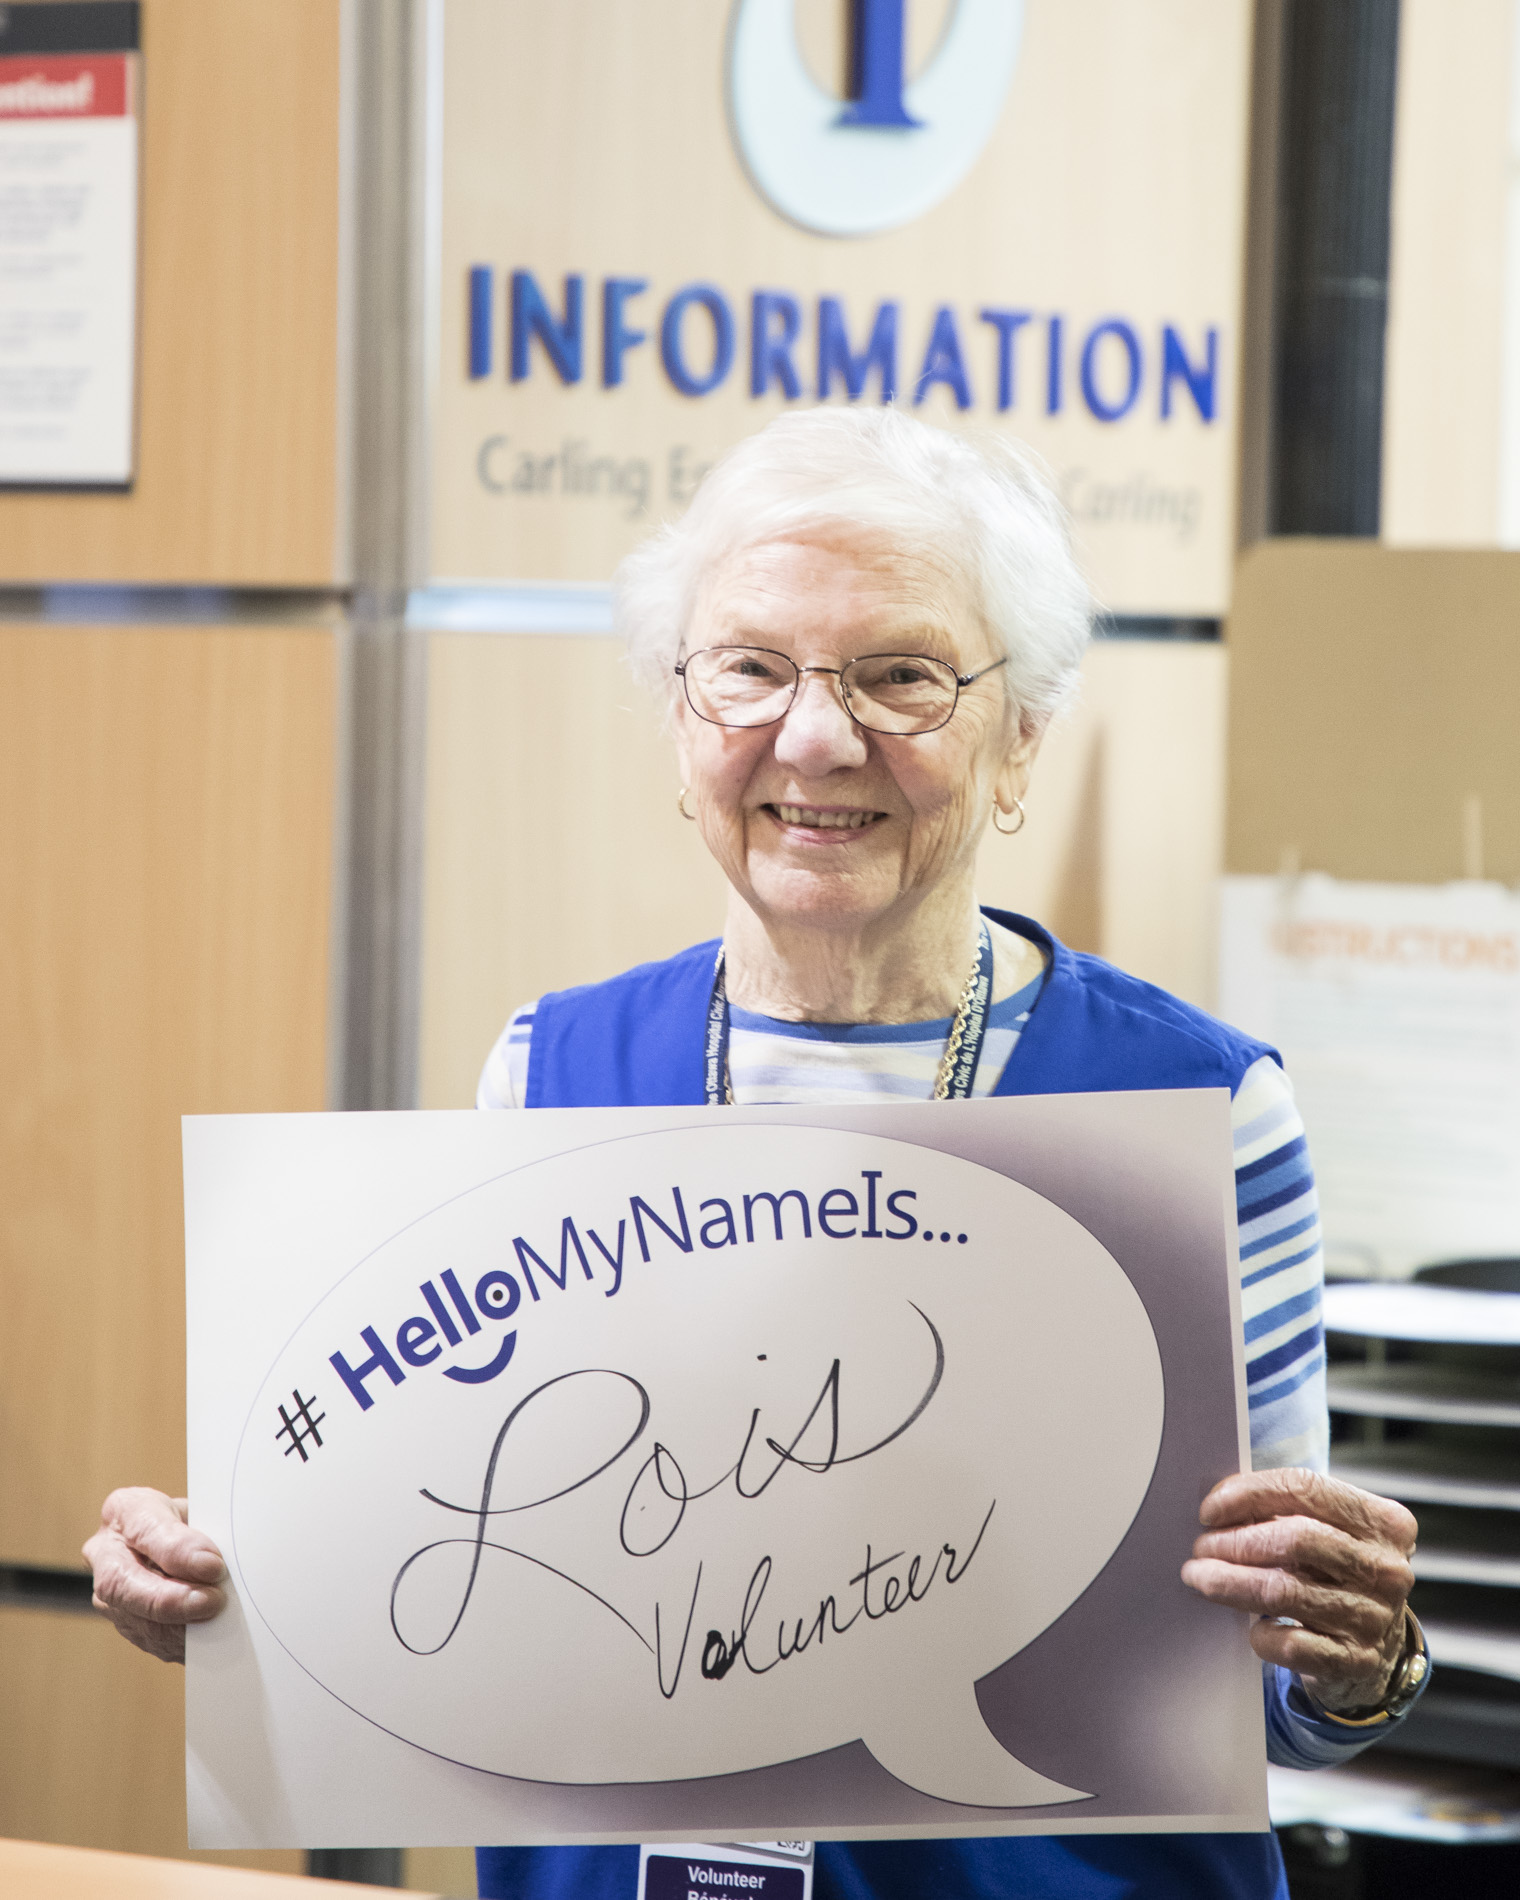 ntion!
I
INFORMATION
Carling Carling
INSTRUCTIONS
Ottawa Hospital Civic
Civic de L'Hôpital D'Ottawa
#HelloMyNameIs...
Lois
Volunteer
Volunteer